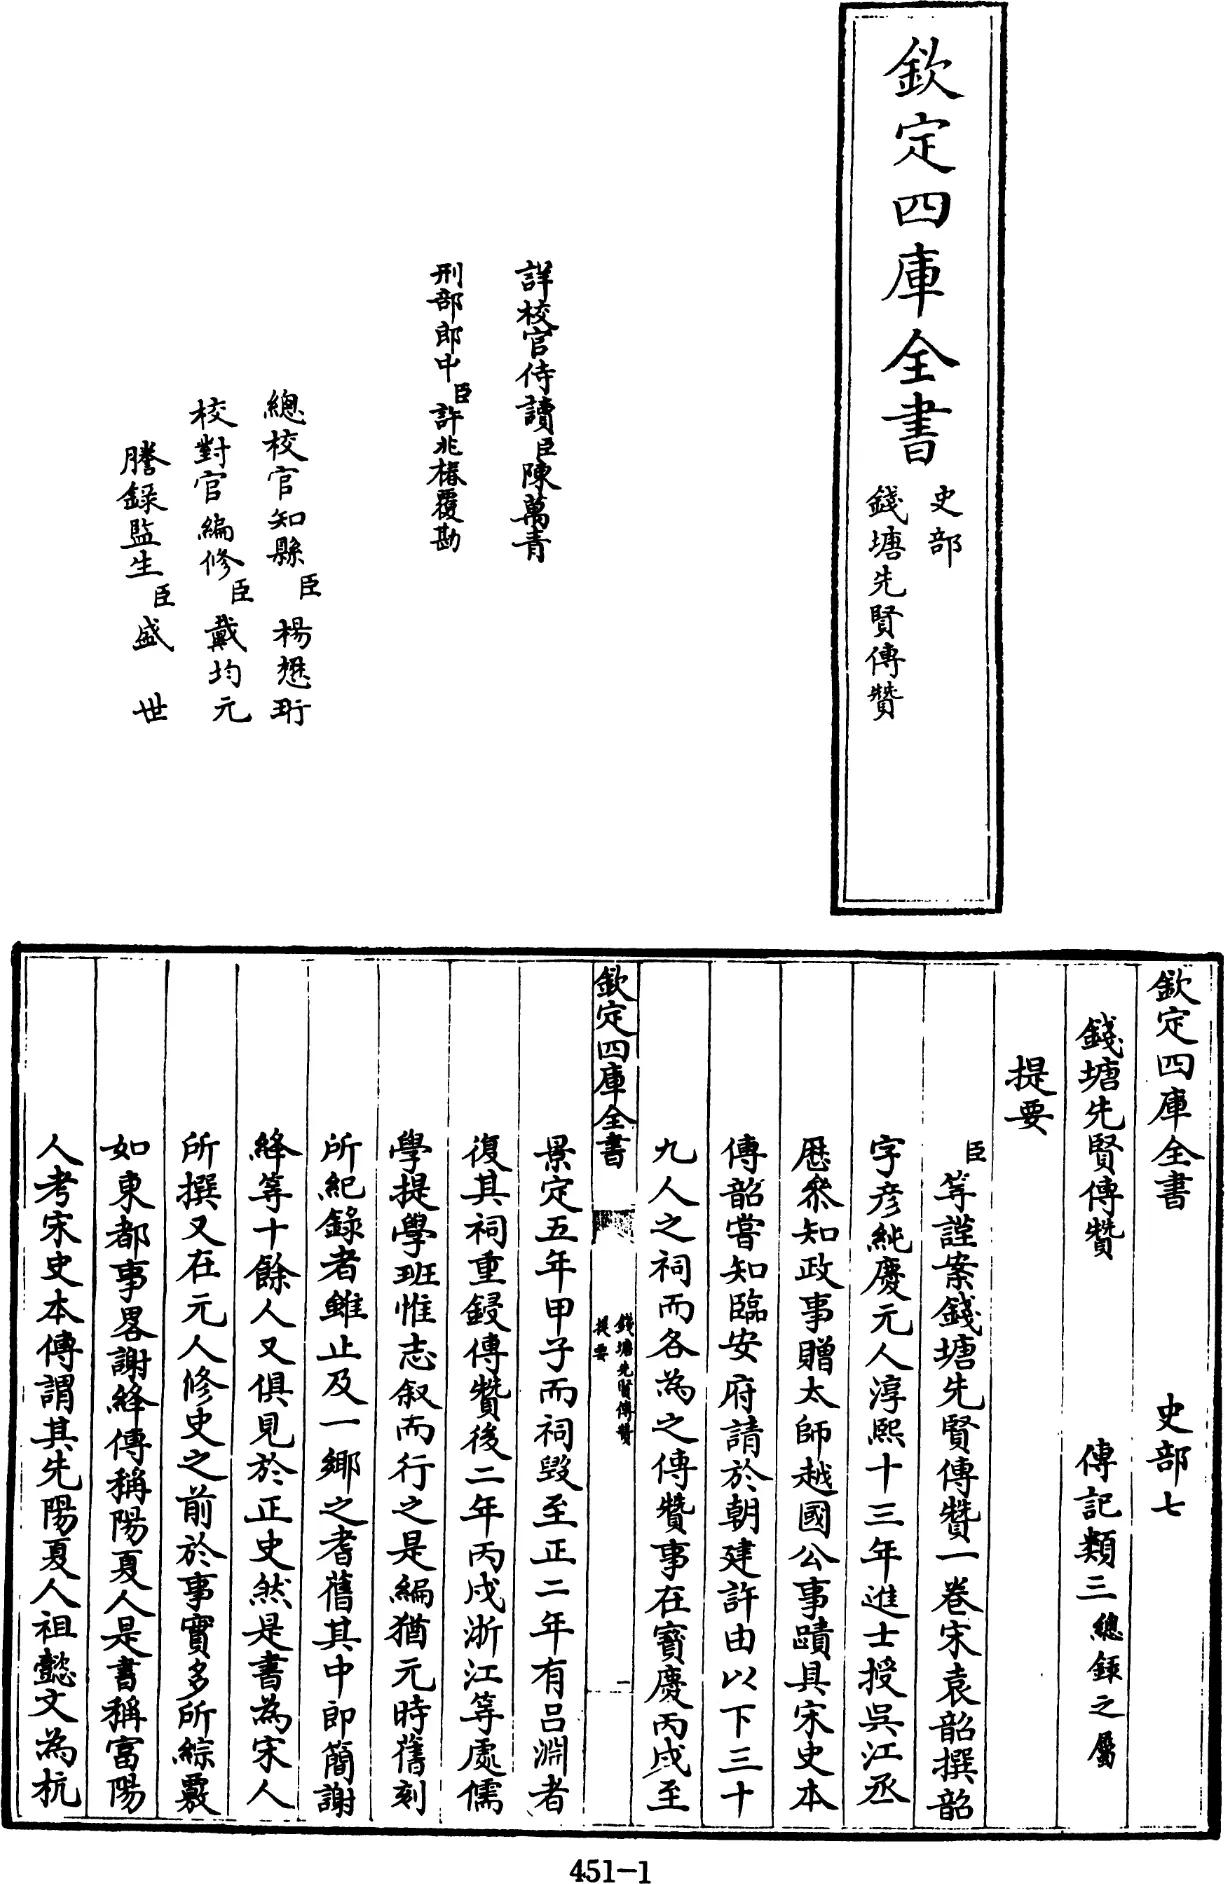 欽定四庫全書
史部
錢塘先賢傳贊
詳校官侍讀臣陳萬青
刑部郎中臣許兆椿覆勘
總校官知縣臣楊懋珩
校對官編修臣戴均元
謄錄監生臣盛世
欽定四庫全書 史部七
錢塘先賢傳贊 傳記類三總録之屬
提要
臣等謹案錢塘先賢傳贊一卷宋袁韶撰韶
字彦純慶元人淳熙十三年進士授吳江丞
歷叅知政事贈太師越國公事蹟具宋史本
傳韶嘗知臨安府請於朝建許由以下三十
九人之祠而各為之傳贊事在寳慶丙戌至
欽定四庫全書
錢塘先賢傳贊
提要
一
景定五年甲子而祠毁至正二年有吕淵者
復其祠重鋟傳贊後二年丙戌浙江等處儒
學提學班惟志叙而行之是編猶元時舊刻
所紀錄者雖止及一鄉之耆舊其中即簡謝
絳等十餘人又俱見於正史然是書為宋人
所撰又在元人修史之前於事實多所綜覈
如東都事畧謝絳傳稱陽夏人是書稱富陽
人考宋史本傳謂其先陽夏人祖懿文為杭
451-1